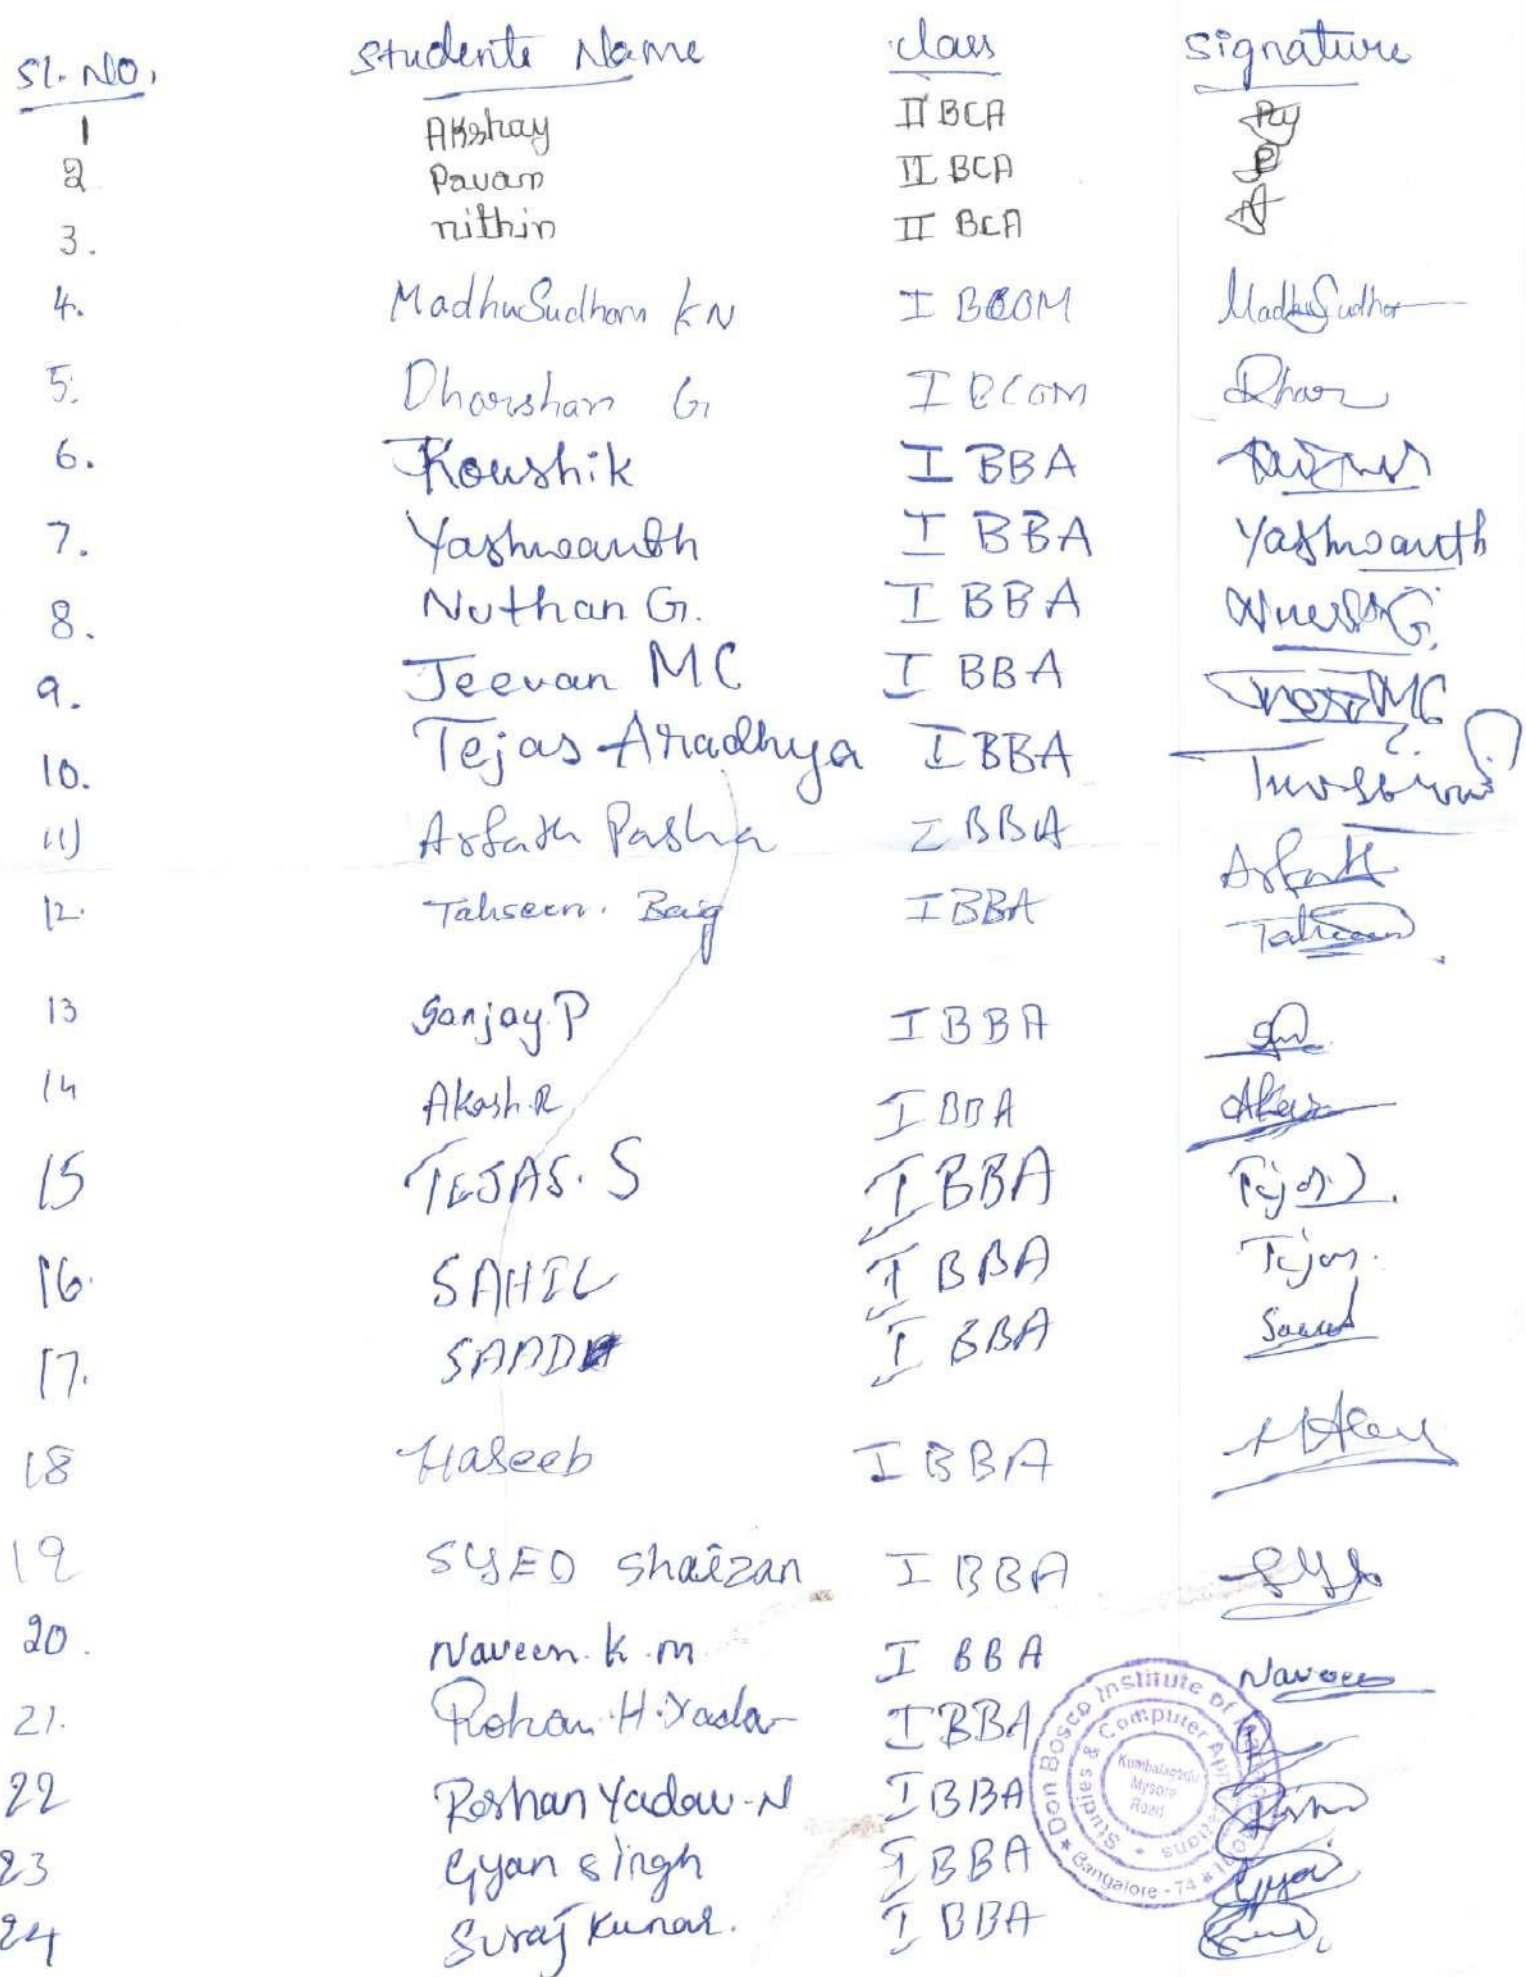 Sl. No. Students Name class Signature
1 Akshay II BCA
2 Pavan II BCA
3. nithin II BCA
4. MadhuSudhan KN I BCOM MadhuSudhan
5. Dharshan G I BCOM Dhar
6. Koushik I BBA
7. Yashwanth I BBA Yashwanth
8. Nuthan G. I BBA
9. Jeevan MC I BBA
10. Tejas Aradhya I BBA
11) Arfath Pasha I BBA Arfath
12. Tahseen. Baig I BBA Tahseen
13 Sanjay. P I BBA
14 Akash.R I BBA Akas
15 TEJAS. S I BBA Tejas
16. SAHIL I BBA Tejas.
17. SAAD I BBA Saad
18 Haseeb I BBA
19 SYED Shaizan I BBA
20. Naveen. K. m I BBA Naveen
21. Rohan. H. Yadav I BBA
22 Roshan Yadav-N I BBA
23 Gyan singh I BBA Gyan
24 Suraj Kumar. I BBA
Don Bosco Institute of Management
Studies & Computer Applications
Kumbalagodu
Mysore
Road
Bangalore - 74